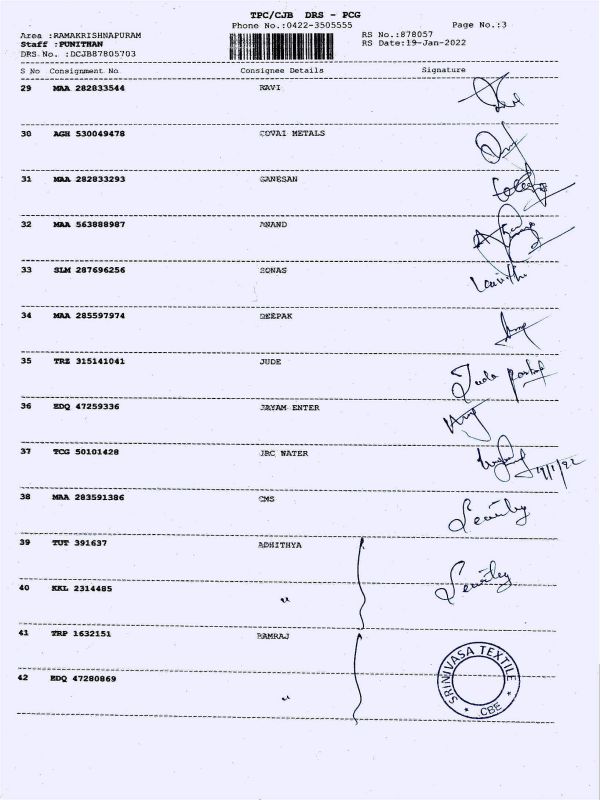 TPC/CJB DRS - PCG
Phone No.:0422-3505555
Page No.:3
Area :RAMAKRISHNAPURAM
RS No.:878057
Staff :PUNITHAN
RS Date:19-Jan-2022
DRS No. :DCJB87805703
S No Consignment No Consignee Details Signature
29 MAA 282833544 RAVI
30 AGH 530049478 COVAI METALS
31 MAA 282833293 GANESAN
32 MAA 563888987 ANAND
33 SLM 287696256 SONAS
34 MAA 285597974 DEEPAK
35 TRZ 315141041 JUDE
36 EDQ 47259336 JAYAM ENTER
37 TCG 50101428 JRC WATER
19/1/22
38 MAA 283591386 CMS
39 TUT 391637 ADHITHYA
40 KKL 2314485 "
41 TRP 1632151 RAMRAJ
42 EDQ 47280869 "
SRINIVASA TEXTILE
* CBE *